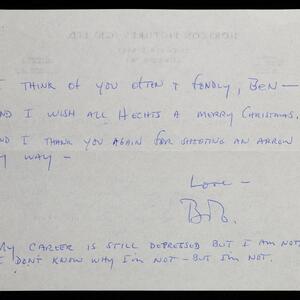 I THINK OF YOU OFTEN & FONDLY, BEN —
AND I WISH ALL HECHTS A MERRY CHRISTMAS.
AND I THANK YOU AGAIN FOR SHOOTING AN ARROW
MY WAY —
LOVE —
MY CAREER IS STILL DEPRESSED BUT I AM NOT.
I DON'T KNOW WHY I'M NOT — BUT I'M NOT.